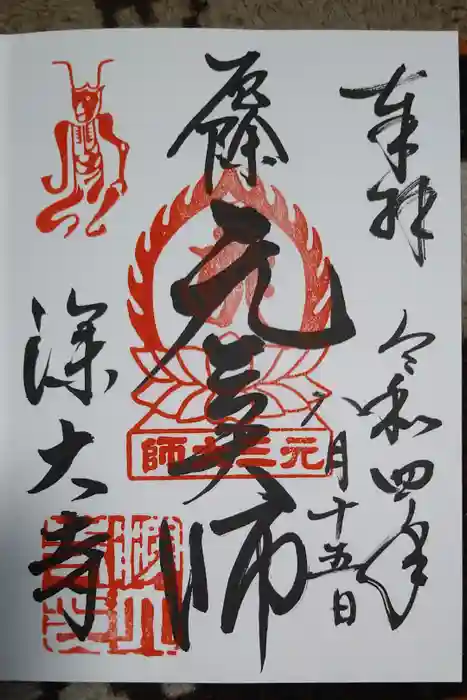 奉拝
令和四年
八月十五日
厄除
元三大師
元三大師
深大寺